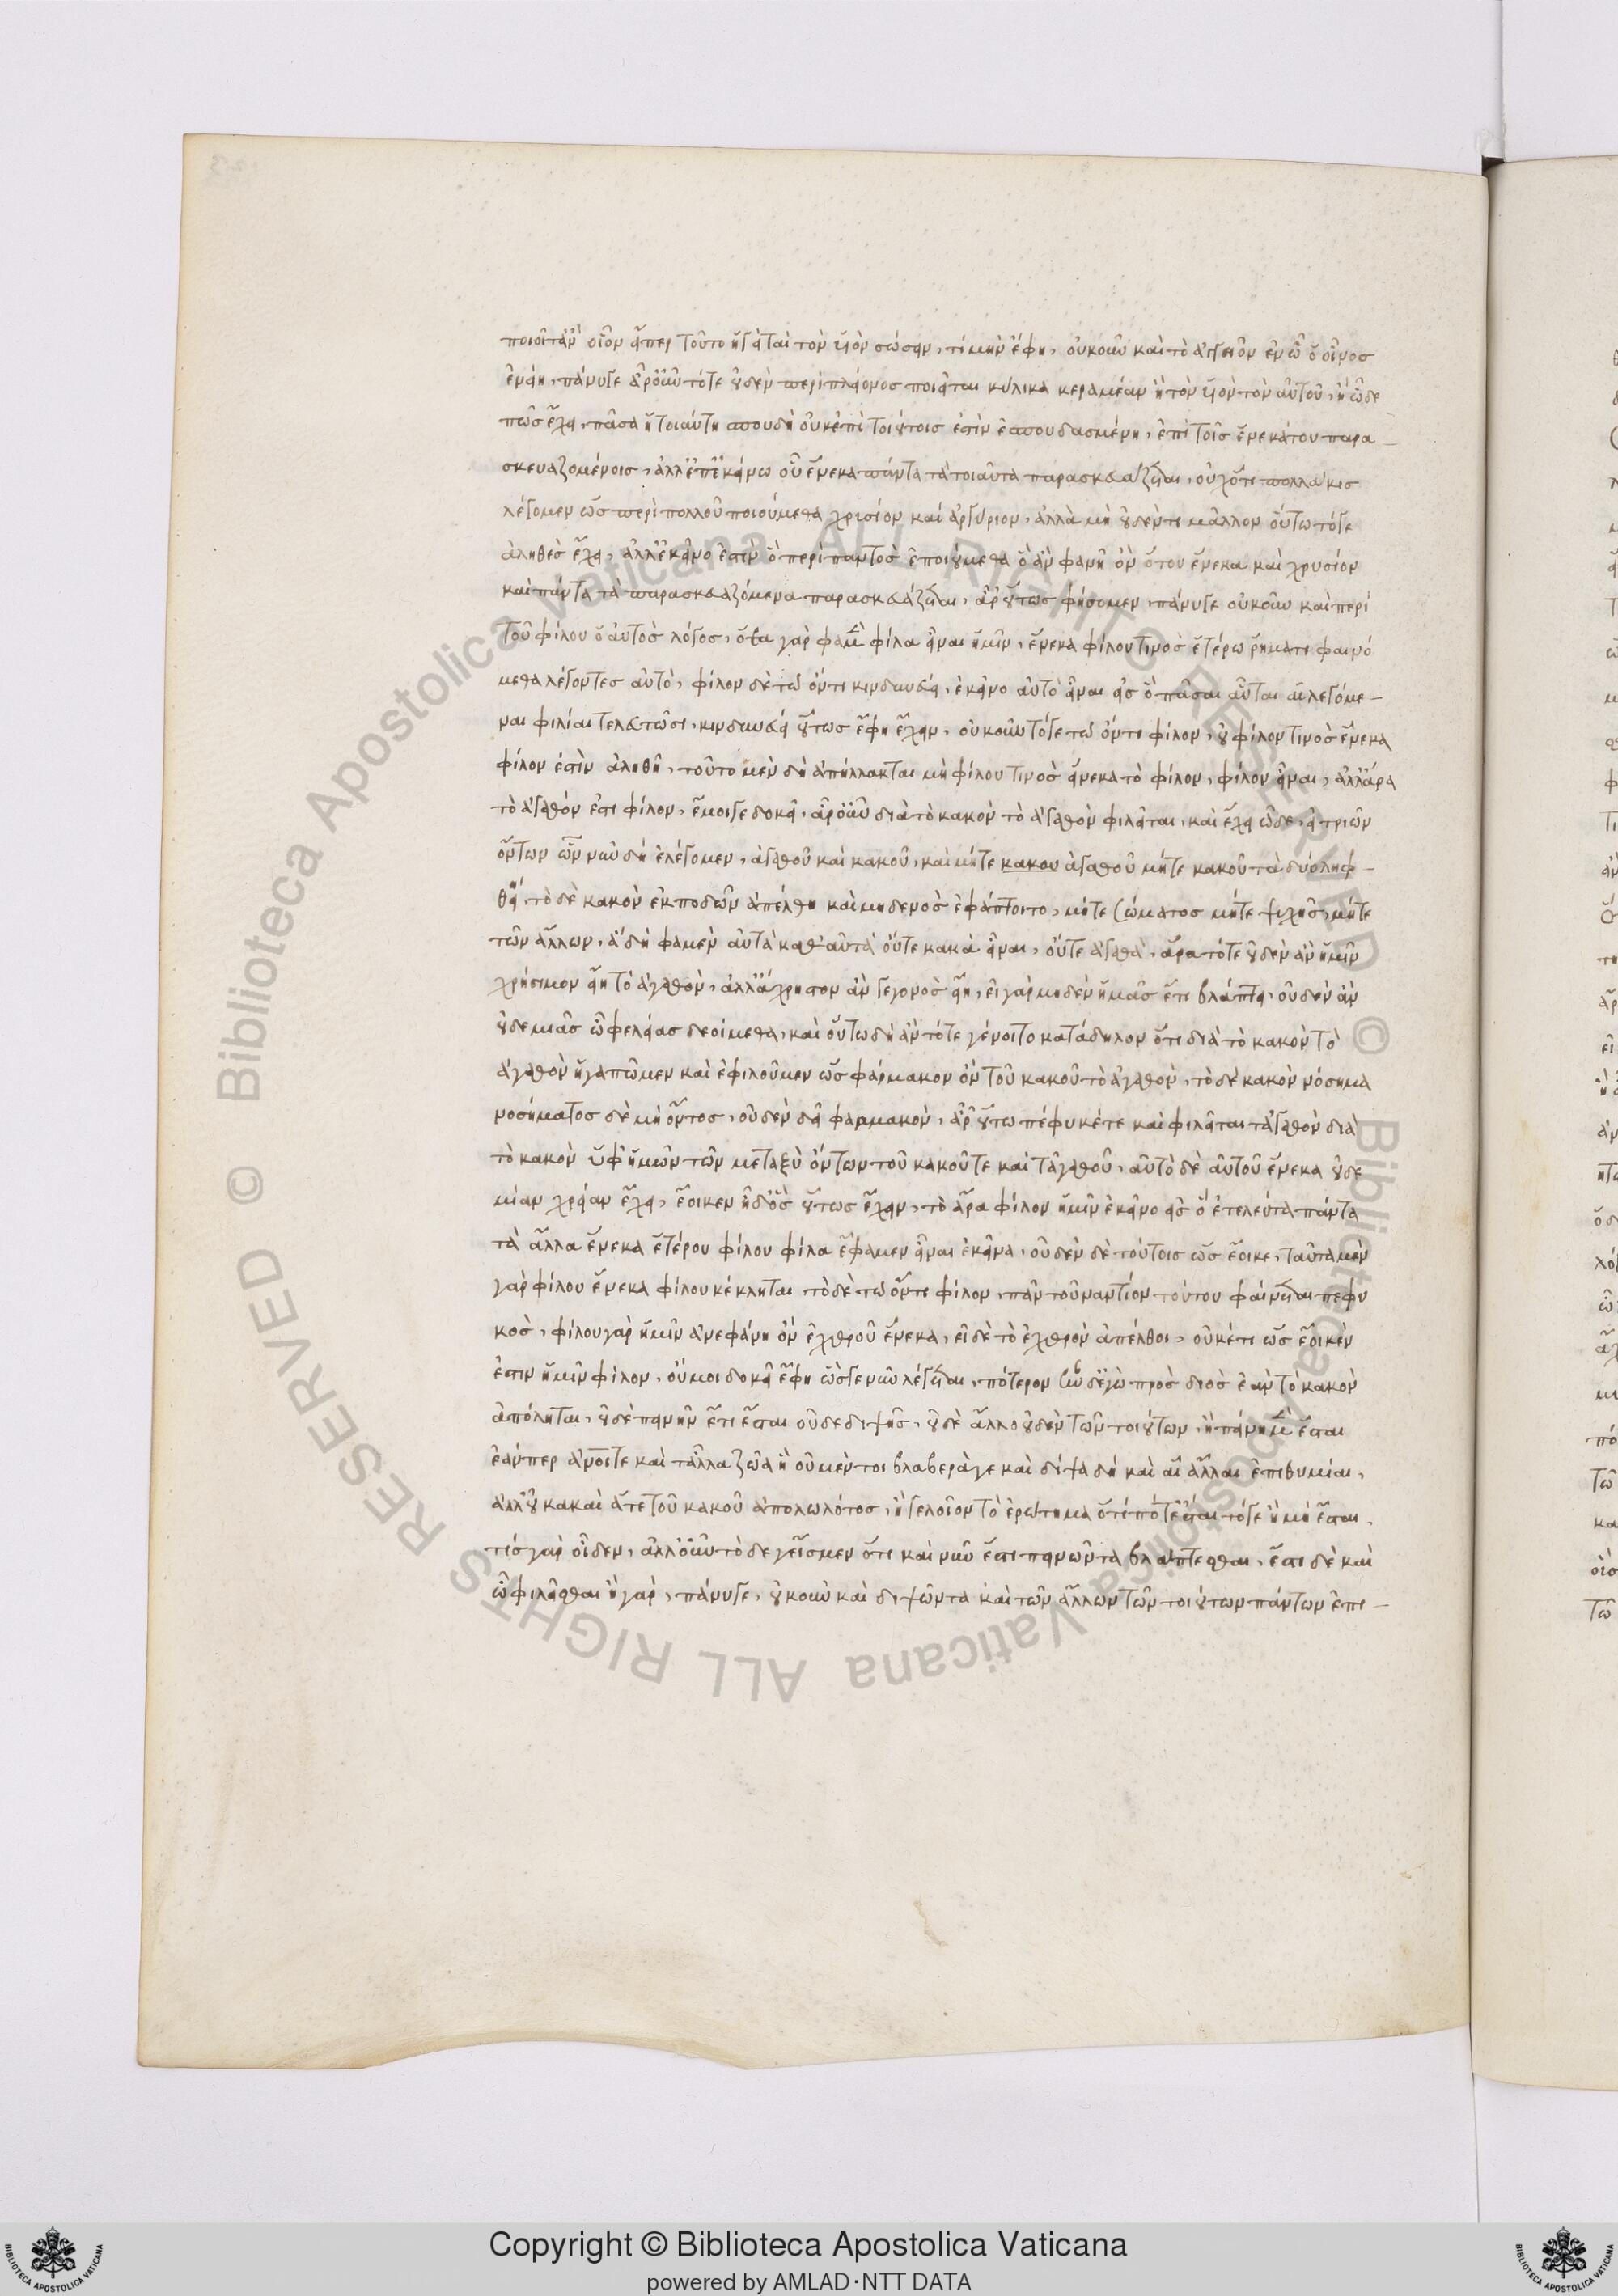 ποιοῖτἂν οἷον εἴπερ τοῦτο ἡγεῖται τὸν υἱὸν σώσειν, τί μὴν ἔφη, οὐκοῦν καὶ τὸ ἀγγεῖον ἐν ὧ ὁ οἶνος
ἐνείη, πάνυγε ἆρ' οὖν τότε οὐδὲν περὶ πλείονος ποιεῖται κύλικα κεραμέαν ἢ τὸν υἱὸν τὸν αὑτοῦ, ἢ ὧδε
πῶς ἔχει, πᾶσα ἡ τοιαύτη σπουδὴ οὐκ ἐπὶ τούτοις ἐστὶν ἐσπουδασμένη, ἐπὶ τοῖς ἕνεκά του παρα-
σκευαζομένοις, ἀλλ' ἐπ' ἐκείνω οὗ ἕνεκα πάντα τὰ τοιαῦτα παρασκευάζεται, οὐχ ὅτι πολλάκις
λέγομεν ὡς περὶ πολλοῦ ποιούμεθα χρυσίον καὶ ἀργύριον, ἀλλὰ μὴ οὐδέν τι μᾶλλον οὕτω τόγε
ἀληθὲς ἔχει, ἀλλ' ἐκεῖνο ἐστὶν ὃ περὶ παντὸς ἐποιούμεθα ὃ ἂν φανῆ ὂν ὅτου ἕνεκα καὶ χρυσίον
καὶ πάντα τὰ παρασκευαζόμενα παρασκευάζεται, ἆρ' οὕτως φήσομεν, πάνυγε οὐκοῦν καὶ περὶ
τοῦ φίλου ὁ αὐτὸς λόγος, ὅσα γάρ φαμὲν φίλα εἶναι ἡμῖν, ἕνεκα φίλου τινὸς ἑτέρω ῥήματι φαινό
μεθα λέγοντες αὐτὸ, φίλον δὲ τῶ ὄντι κινδυνεύει, ἐκεῖνο αὐτὸ εἶναι εἰς ὃ πᾶσαι αὗται αἱ λεγόμε-
ναι φιλίαι τελευτῶσι, κινδυνεύει οὕτως ἔφη ἔχειν, οὐκοῦν τόγε τῶ ὄντι φίλον, οὐ φίλον τινὸς ἕνεκα
φίλον ἐστὶν ἀληθῆ, τοῦτο μὲν δὴ ἀπήλλακται μὴ φίλου τινὸς εἵνεκα τὸ φίλον, φίλον εἶναι, ἀλλ' ἄρα
τὸ ἀγαθόν ἐστι φίλον, ἔμοιγε δοκεῖ, ἆρ' οὖν διὰ τὸ κακὸν τὸ ἀγαθὸν φιλεῖται, καὶ ἔχει ὧδε, εἰ τριῶν
ὄντων ὧν νῦν δὴ ἐλέγομεν, ἀγαθοῦ καὶ κακοῦ, καὶ μήτε κακου ἀγαθοῦ μήτε κακοῦ τὰ δύο ληφ-
θείη, τὸ δὲ κακὸν ἐκποδῶν ἀπέλθη καὶ μηδενὸς ἐφάπτοιτο, μήτε σώματος μήτε ψυχῆς, μήτε
τῶν ἄλλων, ἃ δὴ φαμὲν αὐτὰ καθ' αὑτὰ οὔτε κακὰ εἶναι, οὔτε ἀγαθὰ, ἆρα τότε οὐδὲν ἂν ἡμῖν
χρήσιμον εἴη τὸ ἀγαθὸν, ἀλλ' ἄχρηστον ἂν γεγονὸς εἴη, εἰ γὰρ μηδὲν ἡμᾶς ἔτι βλάπτει, οὐδὲν ἂν
οὐδεμιᾶς ὠφελείας δεοίμεθα, καὶ οὕτω δὴ ἂν τότε γένοιτο κατάδηλον ὅτι διὰ τὸ κακὸν τὸ
ἀγαθὸν ἠγαπῶμεν καὶ ἐφιλοῦμεν ὡς φάρμακον ὂν τοῦ κακοῦ τὸ ἀγαθὸν, τὸ δὲ κακὸν νόσημα
νοσήματος δὲ μὴ ὄντος, οὐδὲν δεῖ φαρμακὸν, ἆρ' οὕτω πέφυκέτε καὶ φιλεῖται τἀγαθὸν διὰ
τὸ κακὸν ὑφ' ἡμῶν τῶν μεταξὺ ὄντων τοῦ κακοῦτε καὶ τἀγαθοῦ, αὐτὸ δὲ αὑτοῦ ἕνεκα οὐδε
μίαν χρείαν ἔχει, ἔοικεν ἦ δ' ὃς οὕτως ἔχειν, τὸ ἄρα φίλον ἡμῖν ἐκεῖνο εἰς ὃ ἐτελεύτα πάντα
τὰ ἄλλα ἕνεκα ἑτέρου φίλου φίλα ἔφαμεν εἶναι ἐκεῖνα, οὐδὲν δὲ τούτοις ὡς ἔοικε, ταῦτα μὲν
γὰρ φίλου ἕνεκα φίλου κέκληται τὸ δὲ τῶ ὄντι φίλον, πᾶν τοὐναντίον τούτου φαίνεται πεφυ
κὸς, φίλου γὰρ ἡμῖν ἀνεφάνη ὂν ἐχθροῦ ἕνεκα, εἰ δὲ τὸ ἐχθρὸν ἀπέλθοι, οὐκέτι ὡς ἔοικὲν
ἐστιν ἡμῖν φίλον, οὔ μοι δοκεῖ ἔφη ὥς γε νῦν λέγεται, πότερον ἦν δ' ἐγὼ πρὸς διὸς ἐὰν τὸ κακὸν
ἀπόληται, οὐδὲ πεινῆν ἔτι ἔσται οὐδὲ διψῆς, οὐδὲ ἄλλο οὐδὲν τῶν τοιούτων, ἢ πείνη μὲν ἔσται
ἐάνπερ ἄνοίτε καὶ τἆλλα ζῶα ἢ οὐ μέντοι βλαβεράγε καὶ δίψα δὴ καὶ αἱ ἄλλαι ἐπιθυμίαι,
ἀλλ' οὐ κακαὶ ἅτε τοῦ κακοῦ ἀπολωλότος, ἢ γελοῖον τὸ ἐρώτημα ὅτί πότ' ἔσται τόγε ἢ μὴ ἔσται,
τίς γὰρ οἶδεν, ἀλλ' οὖν τὸ δέ γ' ἴσμεν ὅτι καὶ νῦν ἔστι πεινῶντα βλάπτεσθαι, ἔστι δὲ καὶ
ὠφελεῖσθαι ἢ γὰρ, πάνυγε, οὐκοῦν καὶ διψῶντα καὶ τῶν ἄλλων τῶν τοιούτων πάντων ἐπι-
Copyright © Biblioteca Apostolica Vaticana
powered by AMLAD·NTT DATA